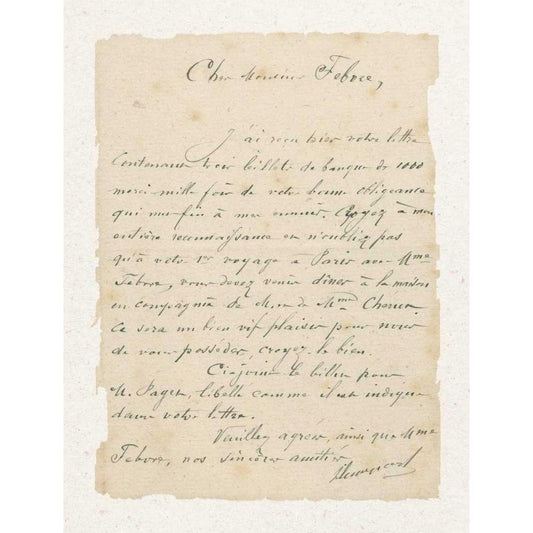 Cher Monsieur Febvre,
J'ai reçu hier votre lettre
Contenant trois billets de banque de 1000
merci mille fois de votre bonne obligeance
qui met fin à mes ennuis. Croyez à mon
entière reconnaissance et n'oubliez pas
qu'à votre 1er voyage à Paris avec Mme
Febvre, vous devez venir dîner à la maison
en compagnie de M. et de Mme
Ce sera un bien vif plaisir pour nous
de vous posséder, croyez le bien.
Ci-joint le billet pour
M. Paget, libellé comme il est indiqué
dans votre lettre.
Veuillez agréer, ainsi que Mme
Febvre, nos sincères amitiés